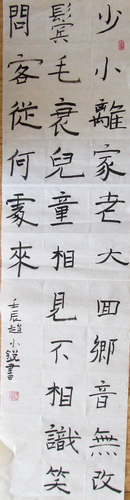 少小離家老大回鄉音無改
鬢毛衰兒童相見不相識笑
問客從何處來
壬辰趙小錟書